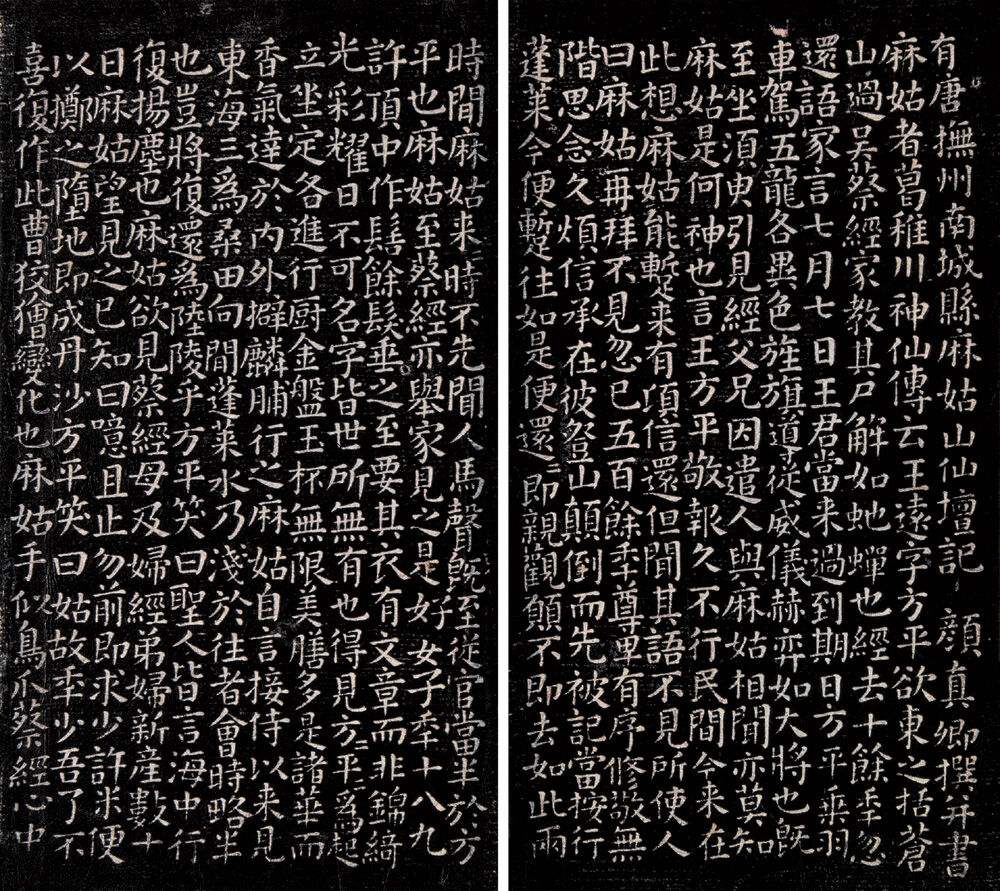 有唐撫州南城縣麻姑山仙壇記 顏真卿撰并書
麻姑者葛稚川神仙傳云王遠字方平欲東之括蒼
山過吳蔡經家教其尸解如虵蟬也經去十餘秊忽
還語家言七月七日王君當来過到期日方平乗羽
車駕五龍各異色旌旗導從威儀赫弈如大將也既
至坐湏臾引見經父兄因遣人與麻姑相聞亦莫知
麻姑是何神也言王方平敬報久不行民間今来在
此想麻姑能蹔来有頃信還但聞其語不見所使人
曰麻姑再拜不見忽已五百餘秊尊卑有序修敬無
階思念久煩信承在彼登山顛倒而先被記當按行
蓬莱今便蹔往如是便還〻即親觀願不即去如此兩
時間麻姑来〻時不先聞人馬聲既至從官當半於方
平也麻姑至蔡經亦舉家見之是好女子秊十八九
許頂中作髻餘髮垂之至要其衣有文章而非錦綺
光彩耀日不可名字皆世所無有也得見方〻平〻為起
立坐定各進行厨金盤玉杯無限美膳多是諸華而
香氣達於内外擗麟脯行之麻姑自言接侍以来見
東海三為桑田向間蓬莱水乃淺於往者會時略半
也豈將復還為陸陵乎方平笑曰聖人皆言海中行
復揚塵也麻姑欲見蔡經母及婦經弟婦新産數十
日麻姑望見之已知曰噫且止勿前即求少許米便
以擲之墮地即成丹沙方平笑曰姑故秊少吾了不
喜復作此曹狡獪變化也麻姑手似鳥爪蔡經心中